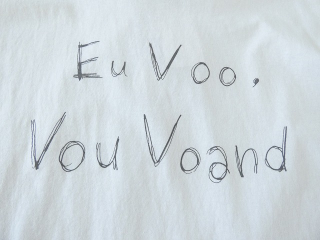 Eu Voo,
Vou Voand